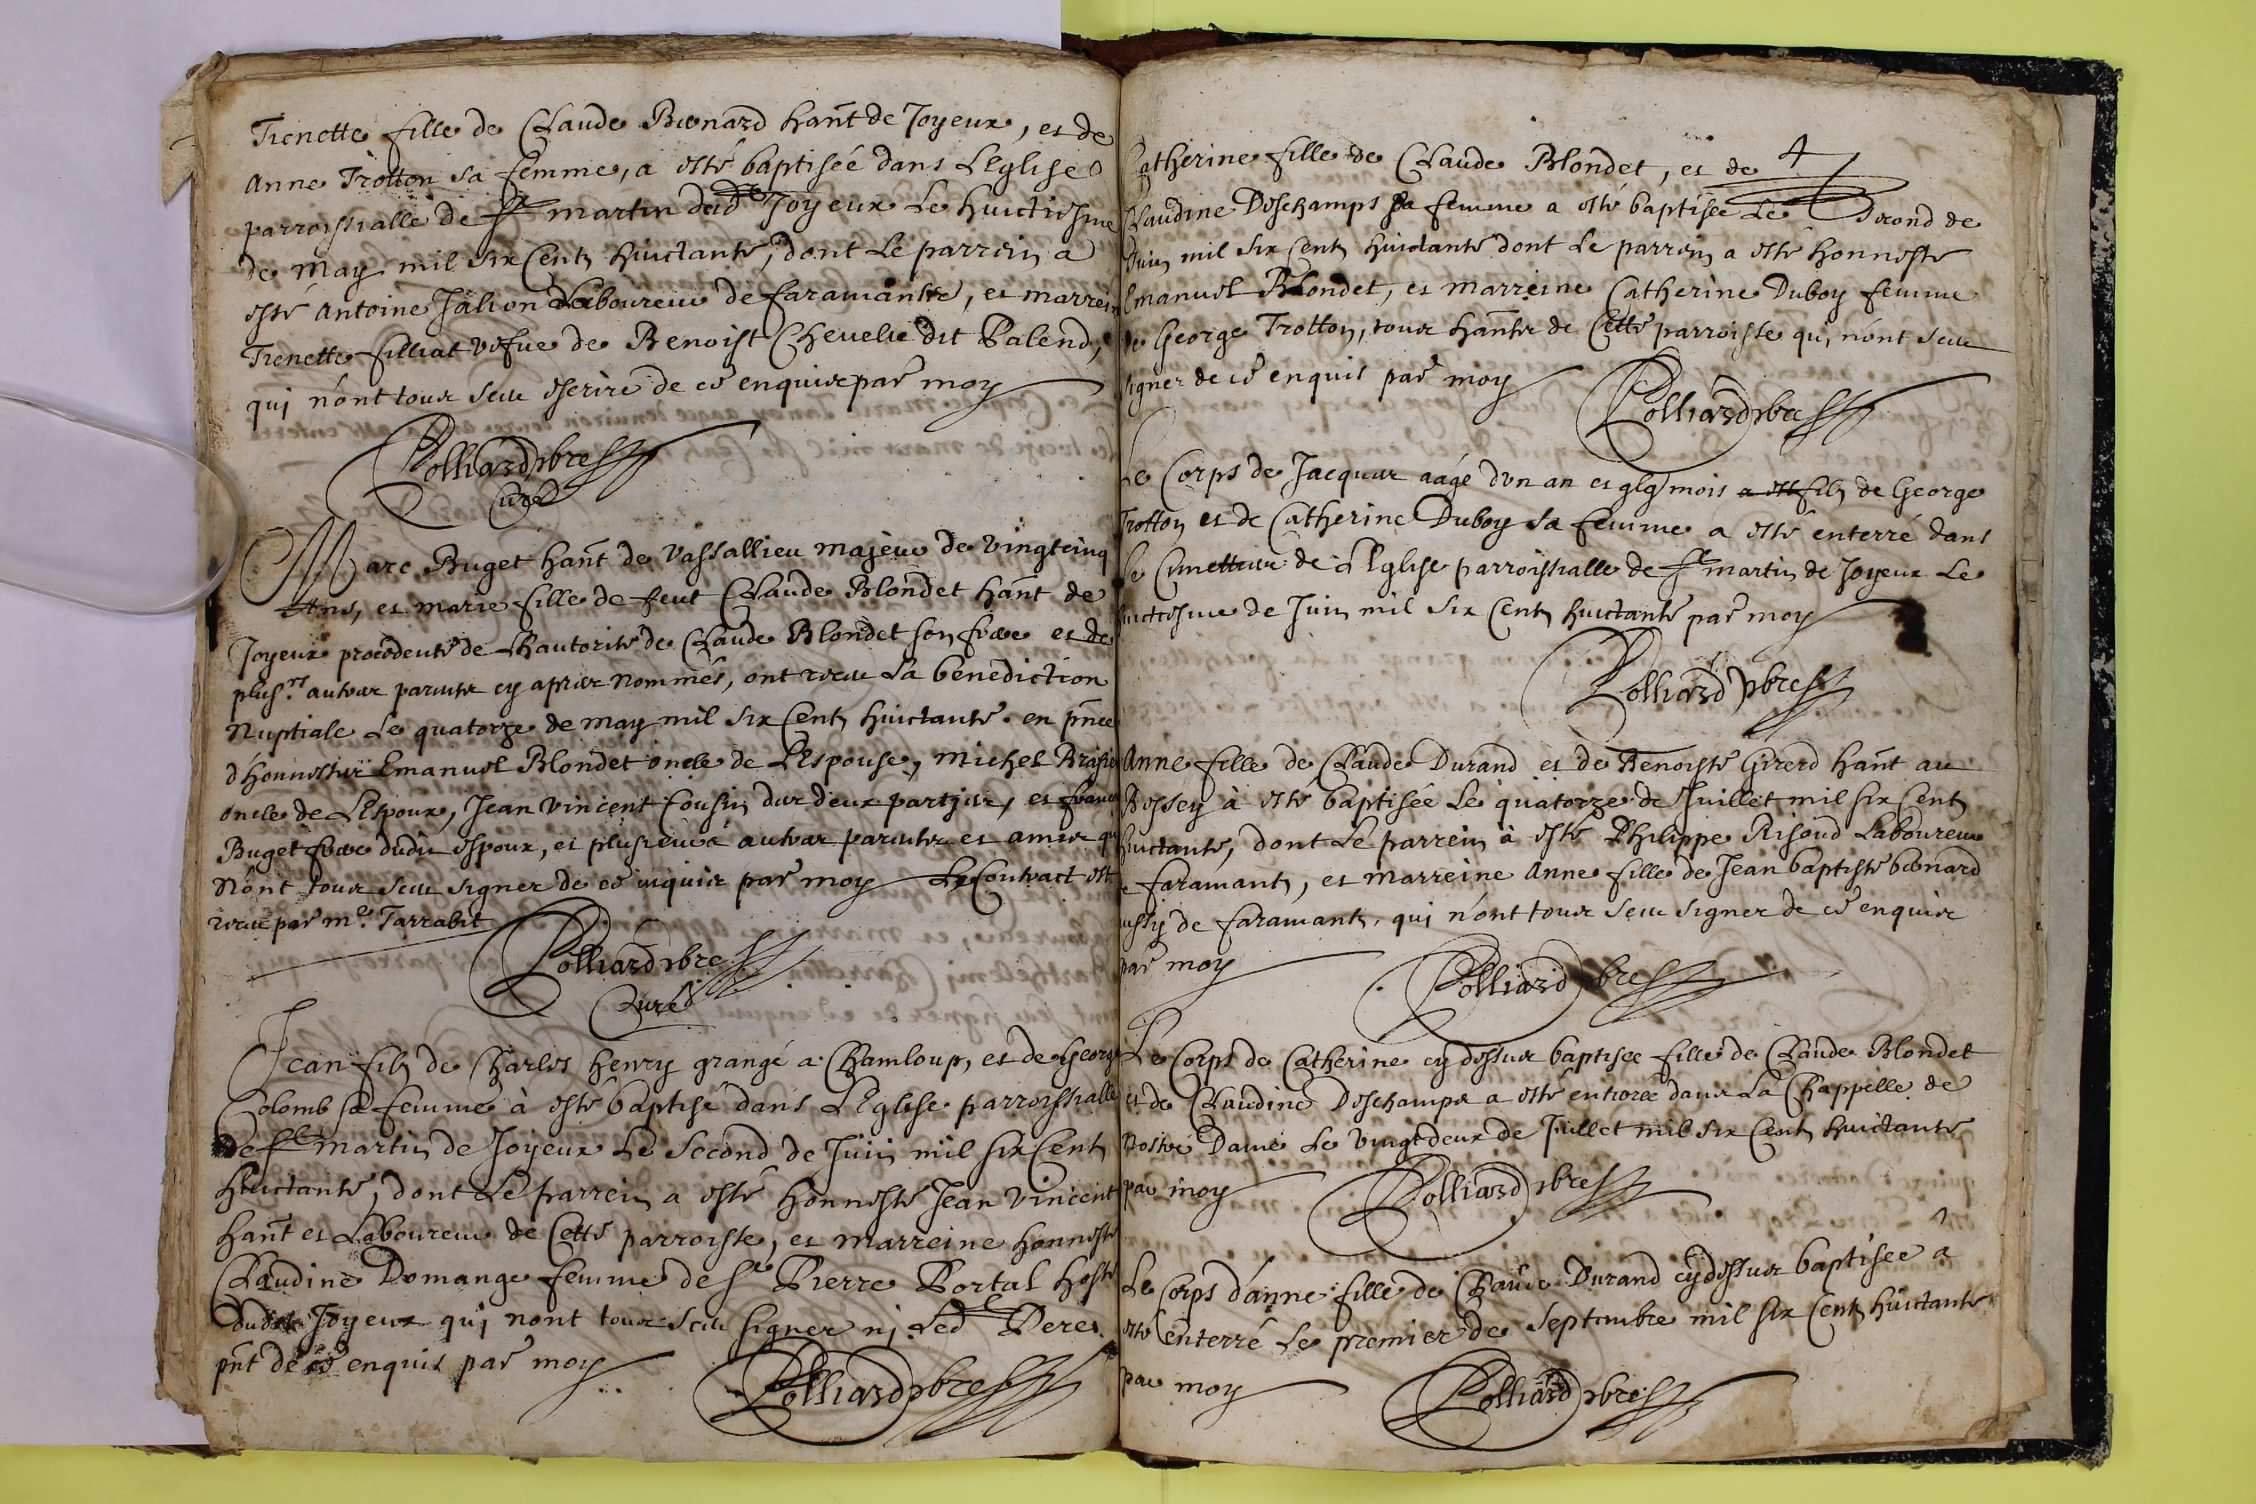 Tienette fille de Claude Benard hant de Joyeux, et de
Anne Trotton sa femme, a esté baptisée dans LEglise
parroissialle de St martin dud Joyeux Le huictiesme
de may mil six Cents huictante, dont Le parrein a
esté Antoine Jalion Laboureur de faramants, et marrein
Tienette filliat vefve de Benoist Chevelu dit Palend,
qui n'ont tous sceu escrire de ce enquis par moy
Polliard pbre
Curé
Marc Buget hant de Vassallieu majeur de vingtcinq
Ans, et marie fille de feut Claude Blondet hant de
Joyeux procedente de Lhautorité de Claude Blondet son frere et de
plusrs autres parents cy apres nommés, ont receu La benediction
Nuptiale Le quatorze de may mil six Cents huictante en pnce
d'honnestes Emanuel Blondet oncle de LEspouse, michel
oncle de LEspoux, Jean Vincent Cousin des deux partyes, et
Buget frere dudit espoux, et plusieurs autres parents et amis qui
N'ont tous sceu signer de ce enquis par moy Le Contract est
receu par me Tarrabit
Polliard pbre
Curé
Jean fils de Charles henry grangé a Chamloup, et de George
Colomb sa femme à esté baptisé dans LEglise parroissialle
de St martin de Joyeux Le Second de Juin mil six Cents
huictante, dont Le parrein a esté honneste Jean Vincent
hant et Laboureur de Cette parroisse, et marreine honneste
Claudine Domange femme de sr Pierre Portal hoste
dudit Joyeux qui nont tous sceu signer nj Led Pere
pnt de ce enquis par moy
Polliard pbre
4
Catherine fille de Claude Blondet, et de
Claudine Deschamps sa femme a esté baptisée Le Second de
Juin mil six Cents huictante dont Le parrein a esté honneste
Emanuel Blondet, et marreine Catherine Duboy femme
de George Trotton, tous hants de Cette parroisse qui n'ont sceu
signer de ce enquis par moy
Polliard pbre
Le Corps de Jacques aagé d'vn an et qlq mois a est fils de George
Trotton et de Catherine Duboy sa femme a esté enterré dans
Le Cimettiere de LEglise parroissialle de St martin de Joyeux Le
huictiesme de Juin mil six Cents huictante par moy
Polliard pbre
Anne fille de Claude Durand et de Benoiste Girerd hant au
Bessey à esté baptisée Le quatorze de Juillet mil six Cents
huictante, dont Le parrein à esté Philippe Risoud Laboureur
de faramants, et marreine Anne fille de Jean baptiste benard
aussy de faramants, qui n'ont tous sceu signer de ce enquis
par moy
Polliard pbre
Le Corps de Catherine cy dessus baptisée fille de Claude Blondet
et de Claudine Deschamps a esté enterrée dans La Chappelle de
Nostre Dame Le vingtdeux de Juillet mil six Cents huictante
par moy
Polliard pbre
Le Corps d'anne fille de Claude Durand cydessus baptisée à
esté enterré Le premier de Septembre mil six Cents huictante
par moy
Polliard pbre